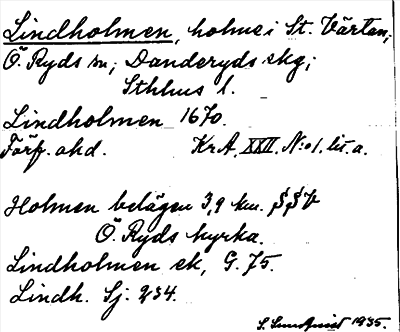 Lindholmen, holme i St. Värtan;
Ö. Ryds sn; Danderyds skg;
Sthlms l.
Lindholmen 1670.
Förf. okd. Kr.A. XXII. N:o 1. lit. a.
Holmen belägen 3,9 km. SSV
Ö. Ryds kyrka.
Lindholmen ek, G. 75.
Lindh. Sj. 234.
S. Sundquist 1935.